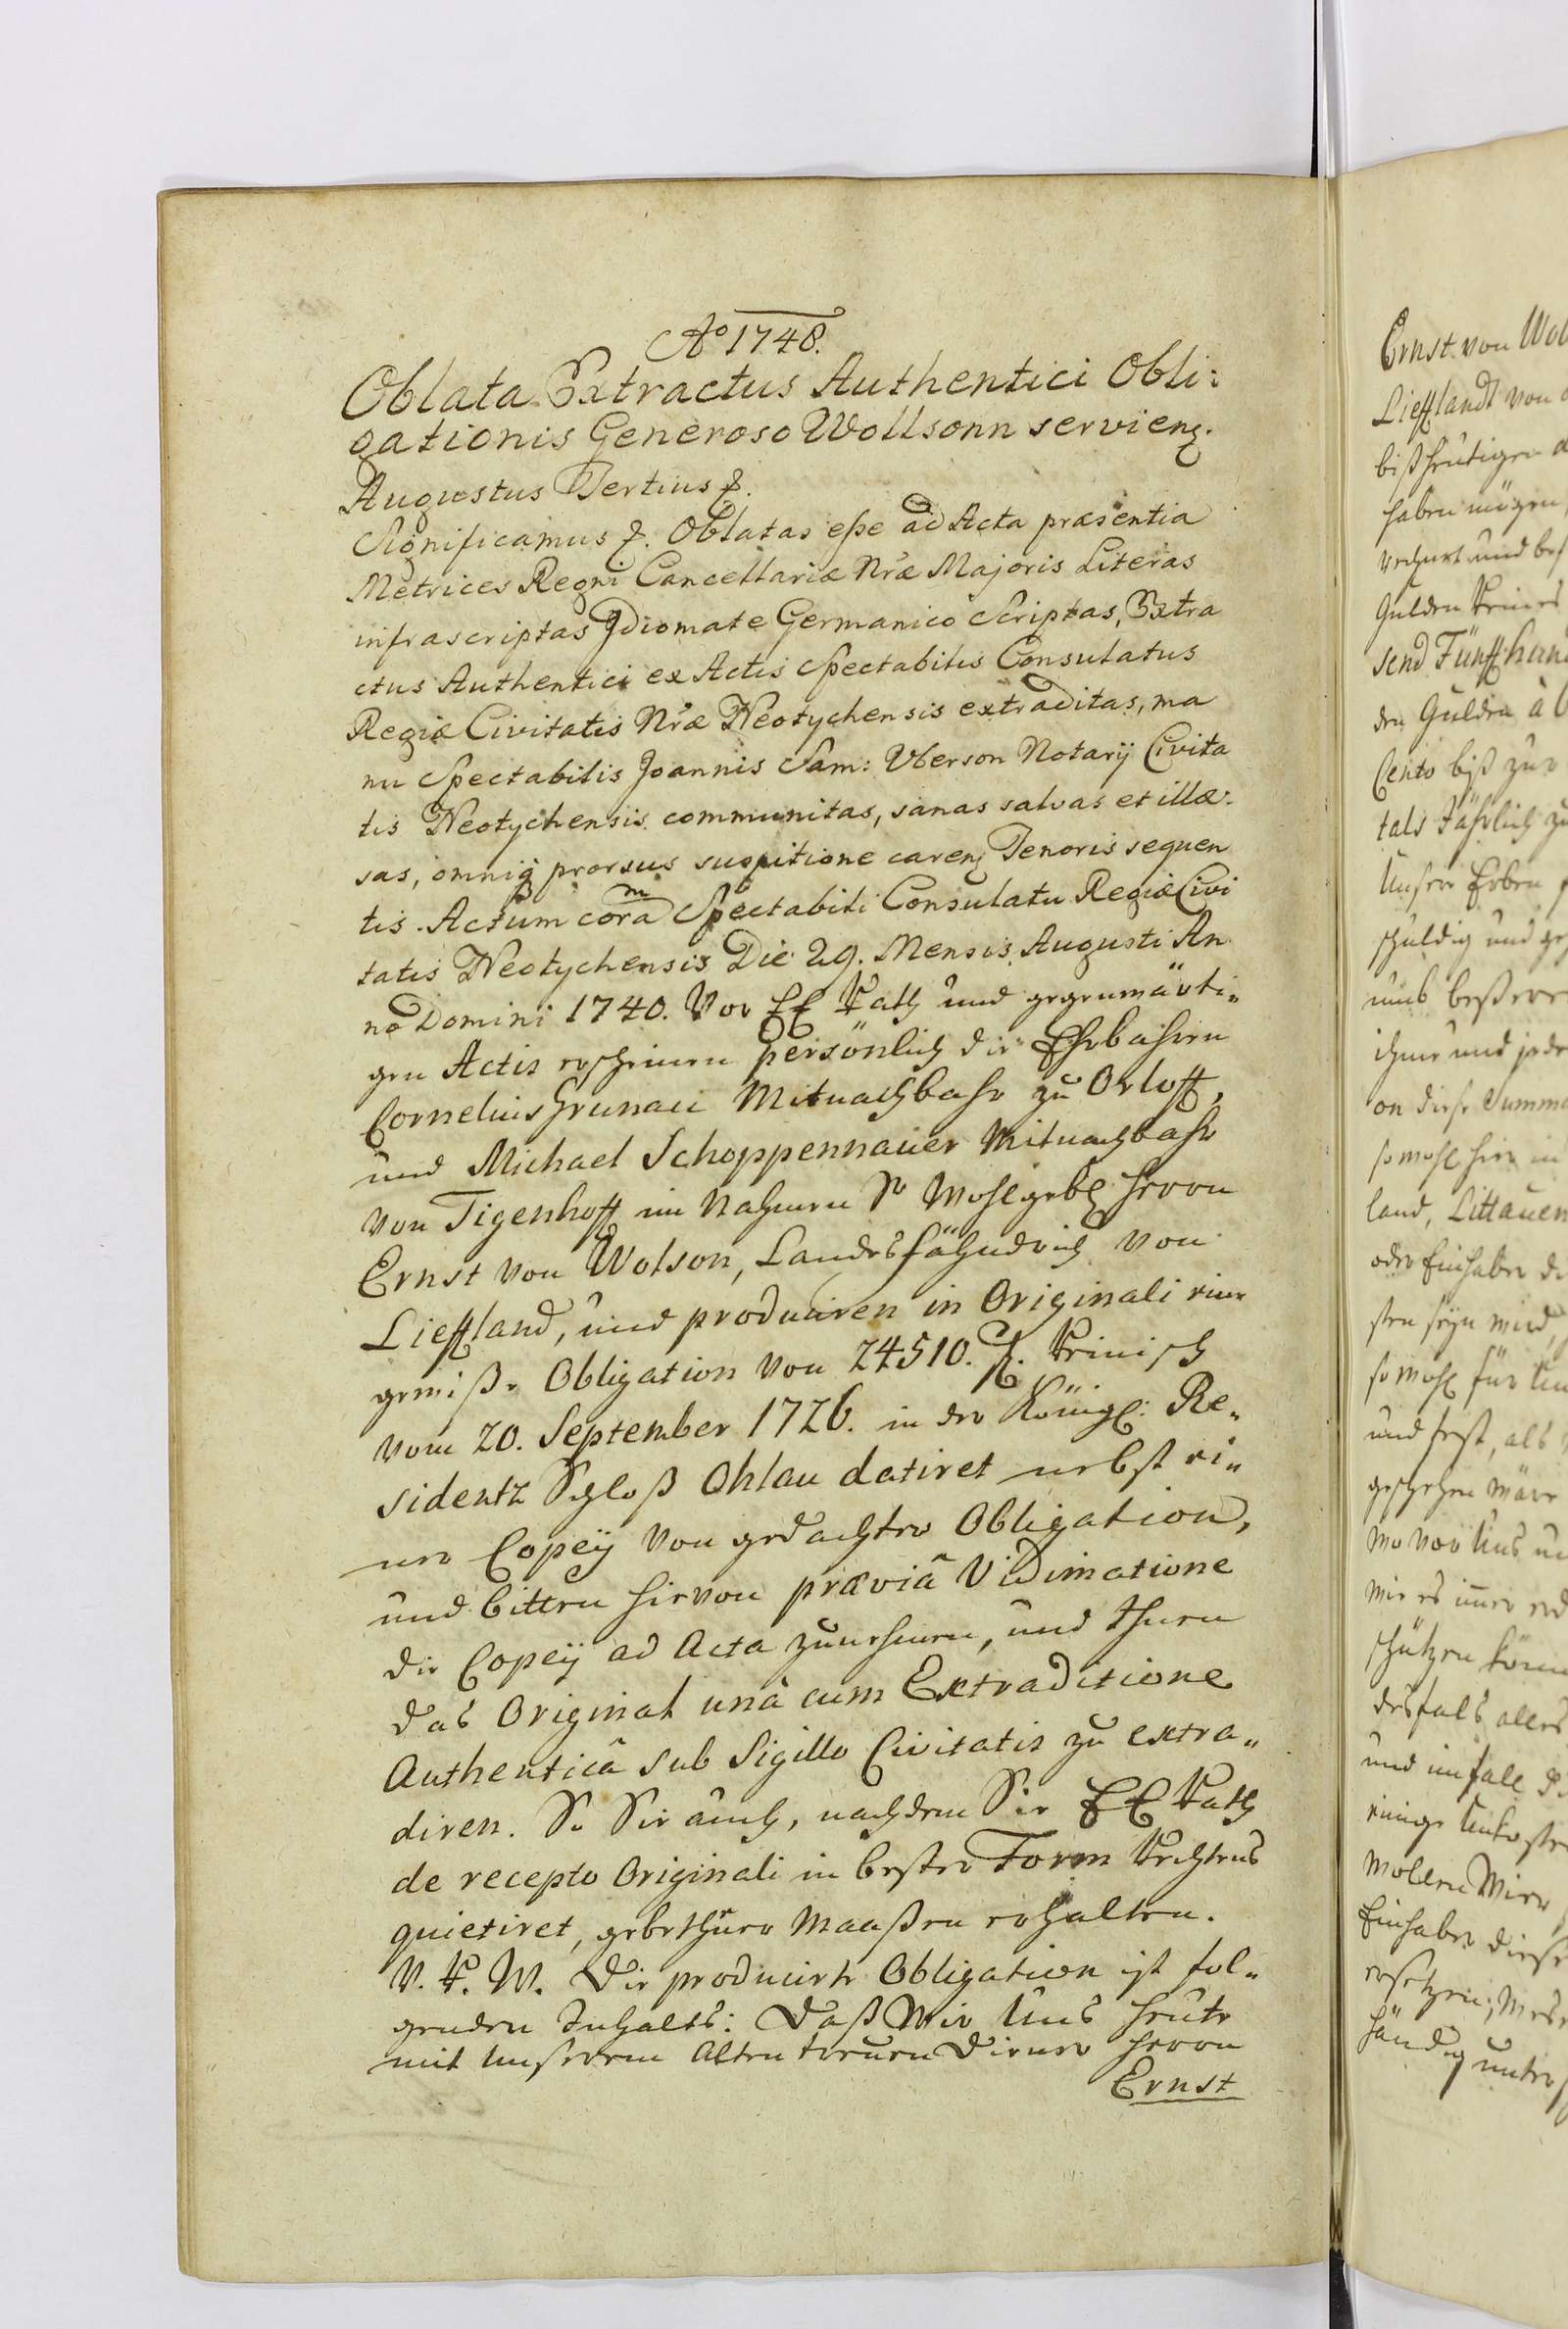 Aº 1748.
Oblata Extractus Authentici Obli:
gationis Generoso Wollsonn servienꝫ.
Augustus Tertius ꝛ.
Significamus ꝛ. Oblatas eße ad Acta præsentia
Metrices Regni Cancellariæ Nr̃æ Majoris Literas
infrascriptas Jdiomate Germanico Scriptas, Extra
ctus Authentici ex Actis Spectabilis Consulatus
Regiæ Civitatis Nr̃æ Neotychensis extraditas, ma
nu Spectabilis Joannis Sam: Uberson Notarij Civita
tis Neotychensis communitas, sanas salvas et illæ-
sas, omniq prorsus suspitione carenꝫ Tenoris sequen
tis. Actum coram Spectabili Consulatu Regiæ Civi
tatis Neotychensis Die 29. Mensis Augusti An
no Domini 1740. Vor EE Rath und gegenwärti„
gen Actis erscheinen persönlich die Ehrbahren
Cornelius Grunau Mitnachbahr zu Orloff,
und Michael Schoppennauer Mitnachbahr
von Tigenhoff im Nahmen Sr Wohlgebl Herrn
Ernst von Wolson, Landesfähndrich von
Lieffland, und produciren in Originali eine
gewiße Obligation von 24510. fl. Reinisch
vom 20. September 1726. in der Königl: Re„
sidentz Schloß Ohlau datiret nebst ei„
ner Copeÿ von gedachter Obligation,
und bitten hirvon præviâ Vidimatione
die Copeÿ ad Acta zunehmen, und Ihnen
das Original unà cum Extraditione
Authenticâ sub Sigillo Civitatis zu extra„
diren. So Sie auch, nachdem Sie EE Rath
de recepto Originali in bester Form Rechtens
quietiret, gebethener Maaßen erhalten.
V. R. W. Die producirte Obligation ist fol„
genden Inhalts: Daß Wir Uns heute
mit Unßerem Alten treuen Diener Herrn
Ernst
Ernst von Wol
Lieffland von
biß heutigen
haben mögen
rechnet und
Gulden Reines
send Fünff hun
den Gulden à
Cento biß zur
tals Jährlich zu
Unsere Erben
schuldig und
uns beßere
ihme und jede
on diese Summa
sowohl hier in
land, Littauen
oder Einhaber
sten seÿn wird,
sowohl für Un
und fest, als
geschehen wäre
wo vor Uns
wie es
schützen könn
desfals alles
und im fall
einige Unkosten
wollen Wir
Einhaber dieser
ersetzen;
händig unter